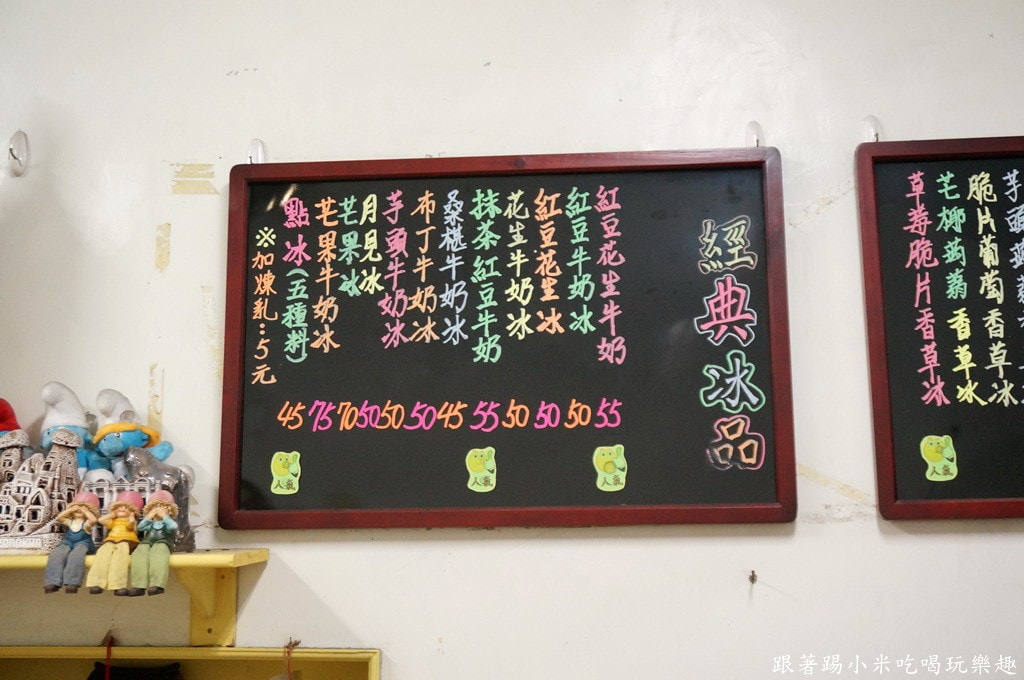 經典冰品
紅豆花生牛奶 55
紅豆牛奶冰 50
紅豆花生冰 50
花生牛奶冰 50
抹茶紅豆牛奶 55
桑椹牛奶冰 45
布丁牛奶冰 50
芋頭牛奶冰 50
月見冰 50
芒果冰 70
芒果牛奶冰 75
點冰(五種料) 45
※加煉乳…5元
人氣
人氣
人氣
脆片葡萄香草冰
芒椰蒟蒻香草冰
草莓脆片香草冰
人氣
跟著踢小米吃喝玩樂趣